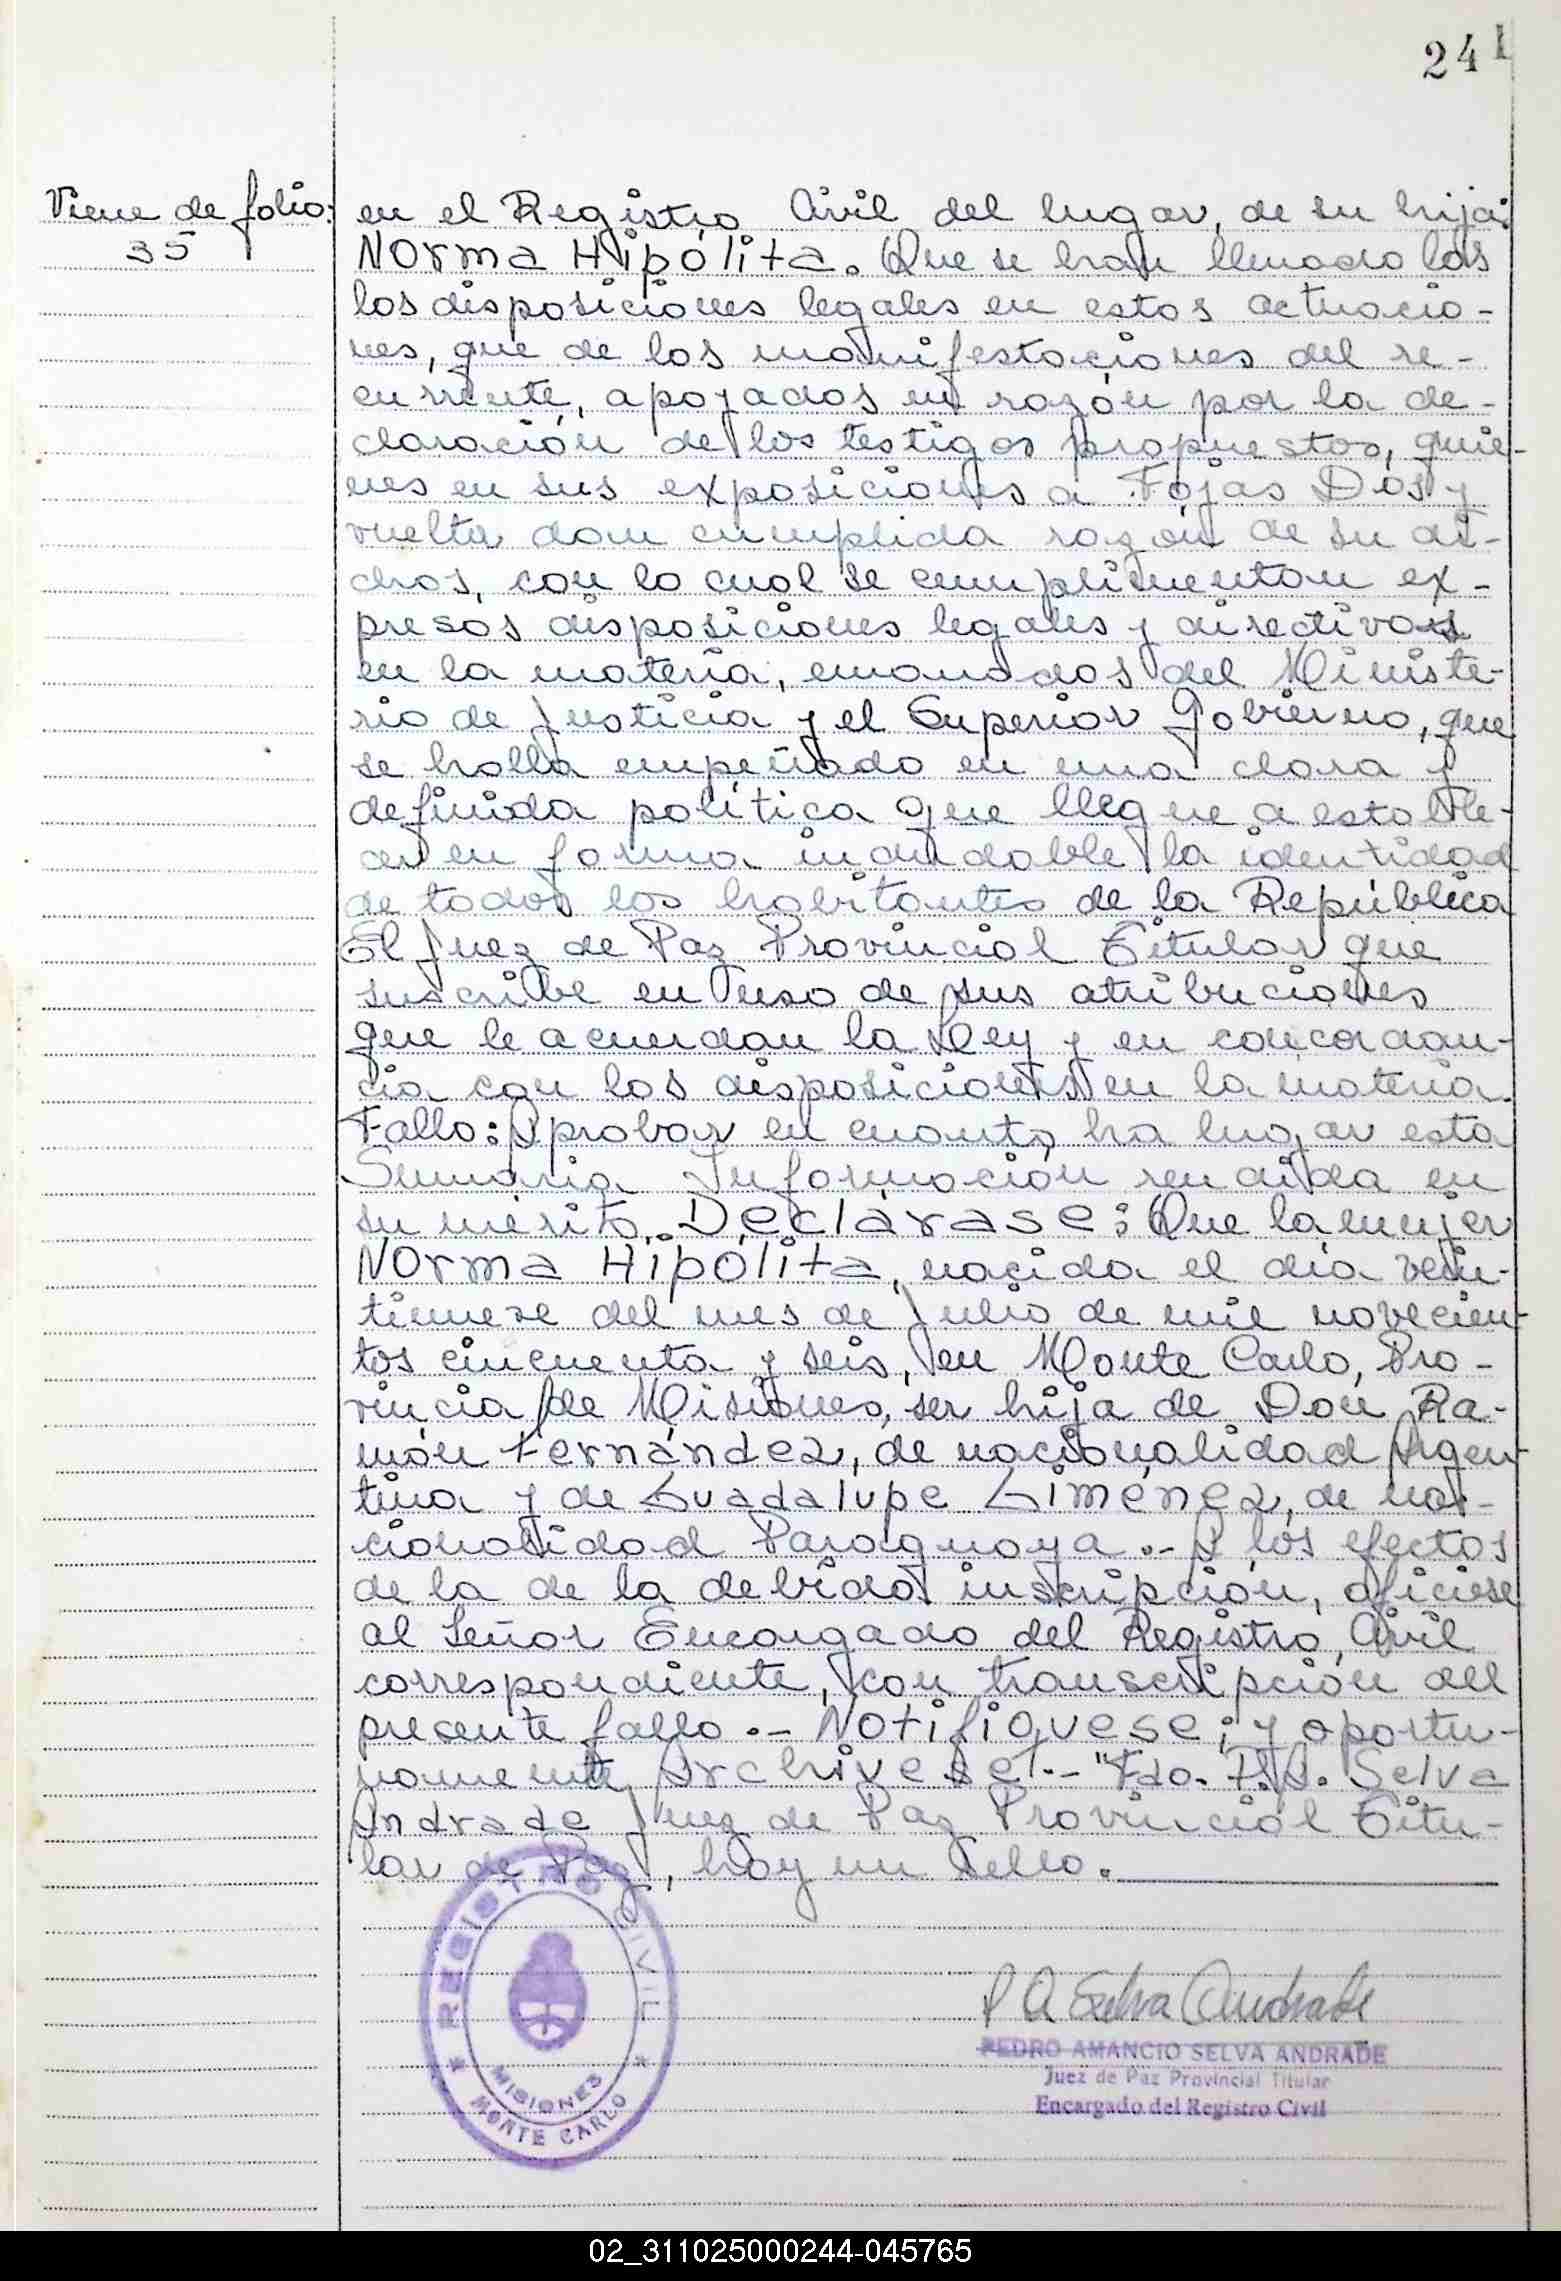 241
Viene de folio:
35
en el Registro Civil del lugar, de su hija:
Norma Hipólita. Que se han llenado las
las disposiciones legales en estas actuacio-
nes, que de las manifestaciones del re-
currente, apoyados en razón por la de-
claración de los testigos propuestos, quie-
nes en sus exposiciones a Fojas Dos y
vuelta dan cumplida razón de su di-
chos, con lo cual se cumplimentan ex-
presas disposiciones legales y directivas
en la materia, emanadas del Ministe-
rio de Justicia y el Superior Gobierno, que
se halla empeñado en una clara y
definida política que llegue a estable-
cer en forma indudable la identidad
de todos los habitantes de la República
El Juez de Paz Provincial Titular que
suscribe en uso de sus atribuciones
que le acuerdan la Ley y en concordan-
cia con las disposiciones en la materia.
Fallo: Aprobar en cuanto ha lugar esta
Sumaria Información rendida en
su mérito. Declárase: Que la mujer
Norma Hipólita, nacida el día vein-
tinueve del mes de Julio de mil novecien-
tos cincuenta y seis, en Monte Carlo, Pro-
vincia de Misiones, ser hija de Don Ra-
món Fernández, de nacionalidad Argen-
tina y de Guadalupe Giménez, de na-
cionalidad Paraguaya.- A los efectos
de la de la debida inscripción, ofíciese
al Señor Encargado del Registro Civil
correspondiente, con transcripción del
presente fallo.- Notifíquese; y oportu-
namente Archívese.- "Fdo. P. A. Selva
Andrade Juez de Paz Provincial Titu-
lar de Paz, hay un sello.
REGISTRO CIVIL
MISIONES
* MONTE CARLO *
P A Selva Andrade
PEDRO AMANCIO SELVA ANDRADE
Juez de Paz Provincial Titular
Encargado del Registro Civil
02_311025000244-045765